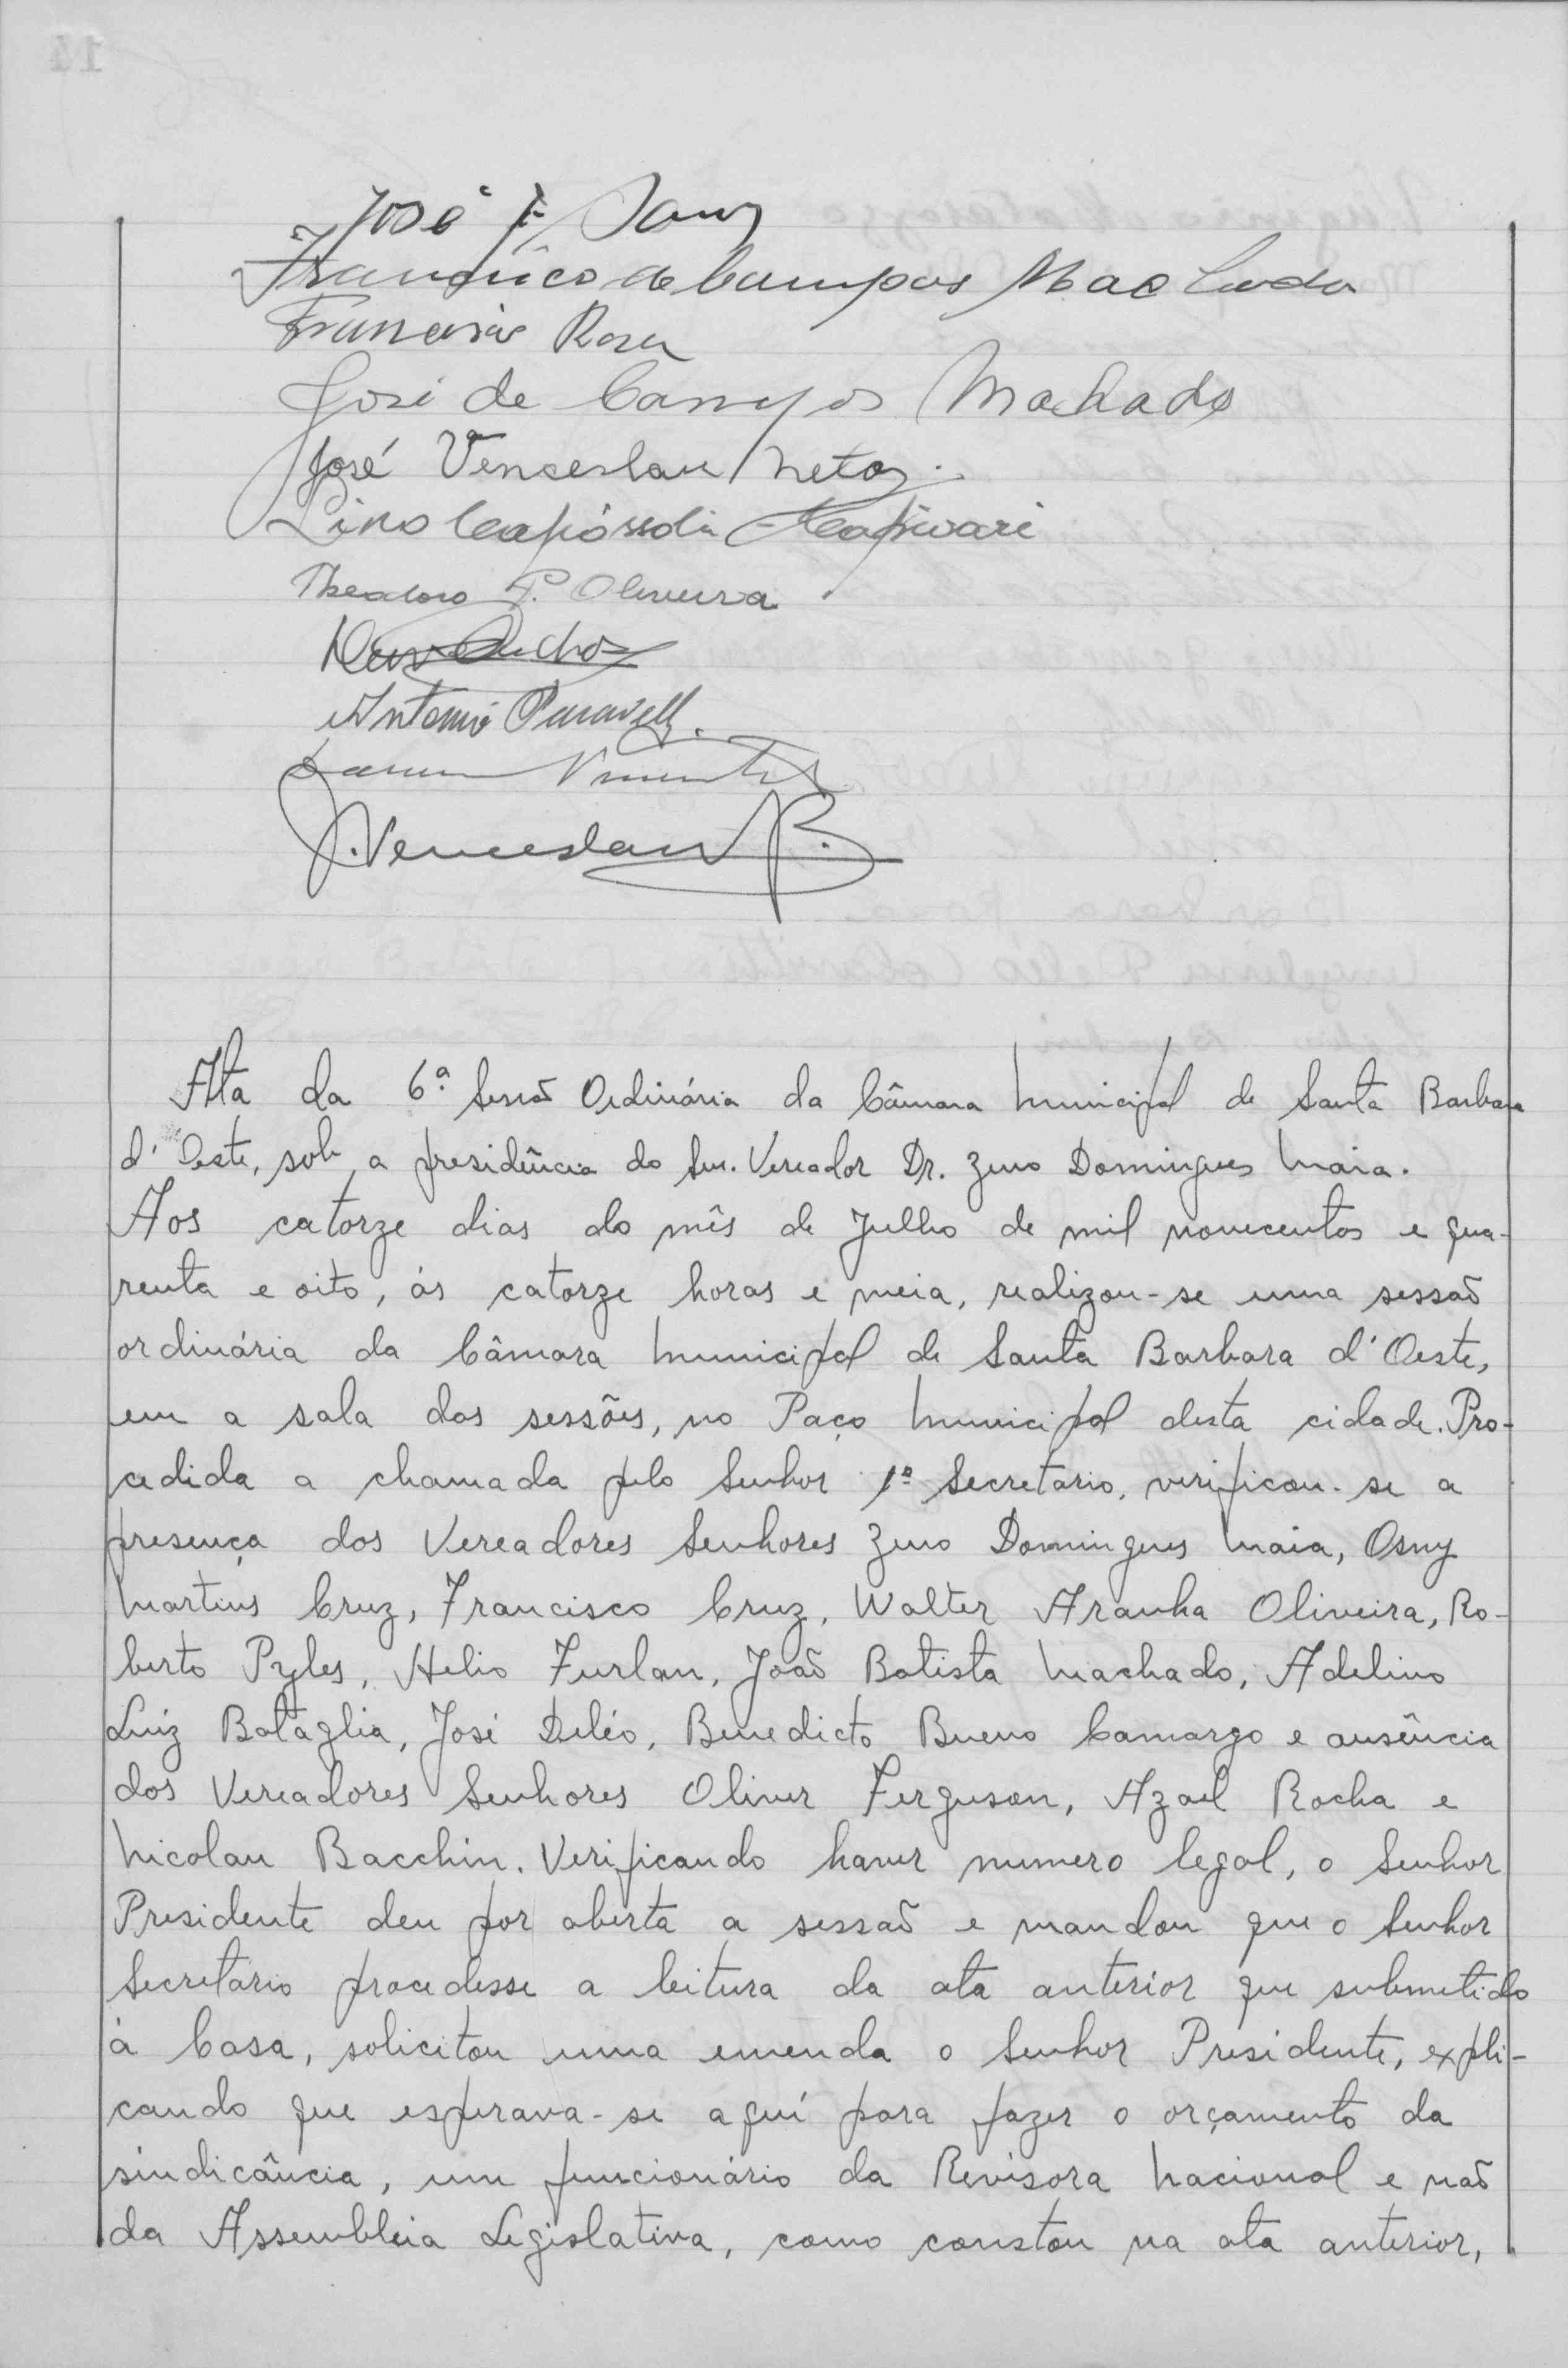 José
Francisco de Campos Machado
Francisco Rosa
José de Campos Machado
José Venceslau Neto
Lino Capóssoli - Capivari
Theodoro P. Oliveira
Antonio
J. Venceslau B.
Ata da 6ª Sessão Ordinária da Câmara Municipal de Santa Barbara
d'Oeste, sob a presidência do Snr. Vereador Dr. Zeno Domingues Maia.
Aos catorze dias do mês de Julho de mil novecentos e qua-
renta e oito, ás catorze horas e meia, realizou-se uma sessão
ordinária da Câmara Municipal de Santa Barbara d'Oeste,
em a sala das sessões, no Paço Municipal desta cidade. Pro-
cedida a chamada pelo Senhor 1º Secretario, verificou-se a
presença dos Vereadores Senhores Zeno Domingues Maia, Osny
Martins Cruz, Francisco Cruz, Walter Aranha Oliveira, Ro-
berto Pyles, Helio Furlan, João Batista Machado, Adelino
Luiz Bataglia, José Deléo, Benedicto Bueno Camargo e ausência
dos Vereadores Senhores Oliver Ferguson, Azael Rocha e
Nicolau Bacchin. Verificando haver numero legal, o Senhor
Presidente deu por aberta a sessão e mandou que o Senhor
Secretario procedesse a leitura da ata anterior que submetido
à Casa, solicitou uma emenda o Senhor Presidente, expli-
cando que esperava-se aquí para fazer o orçamento da
sindicância, um funcionário da Revisora Nacional e não
da Assembleia Legislativa, como constou na ata anterior,